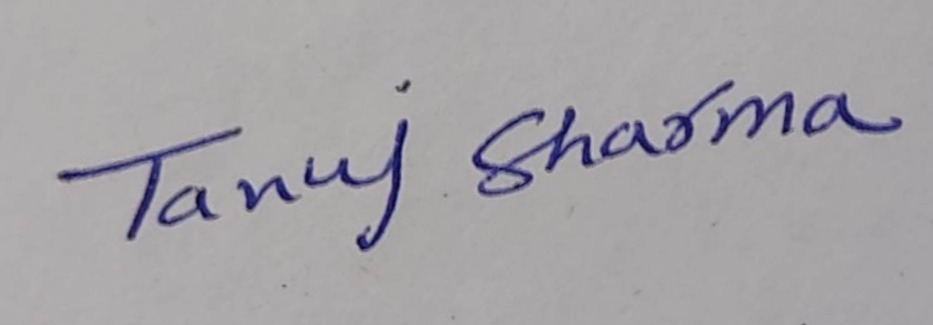 Tanuj Sharma